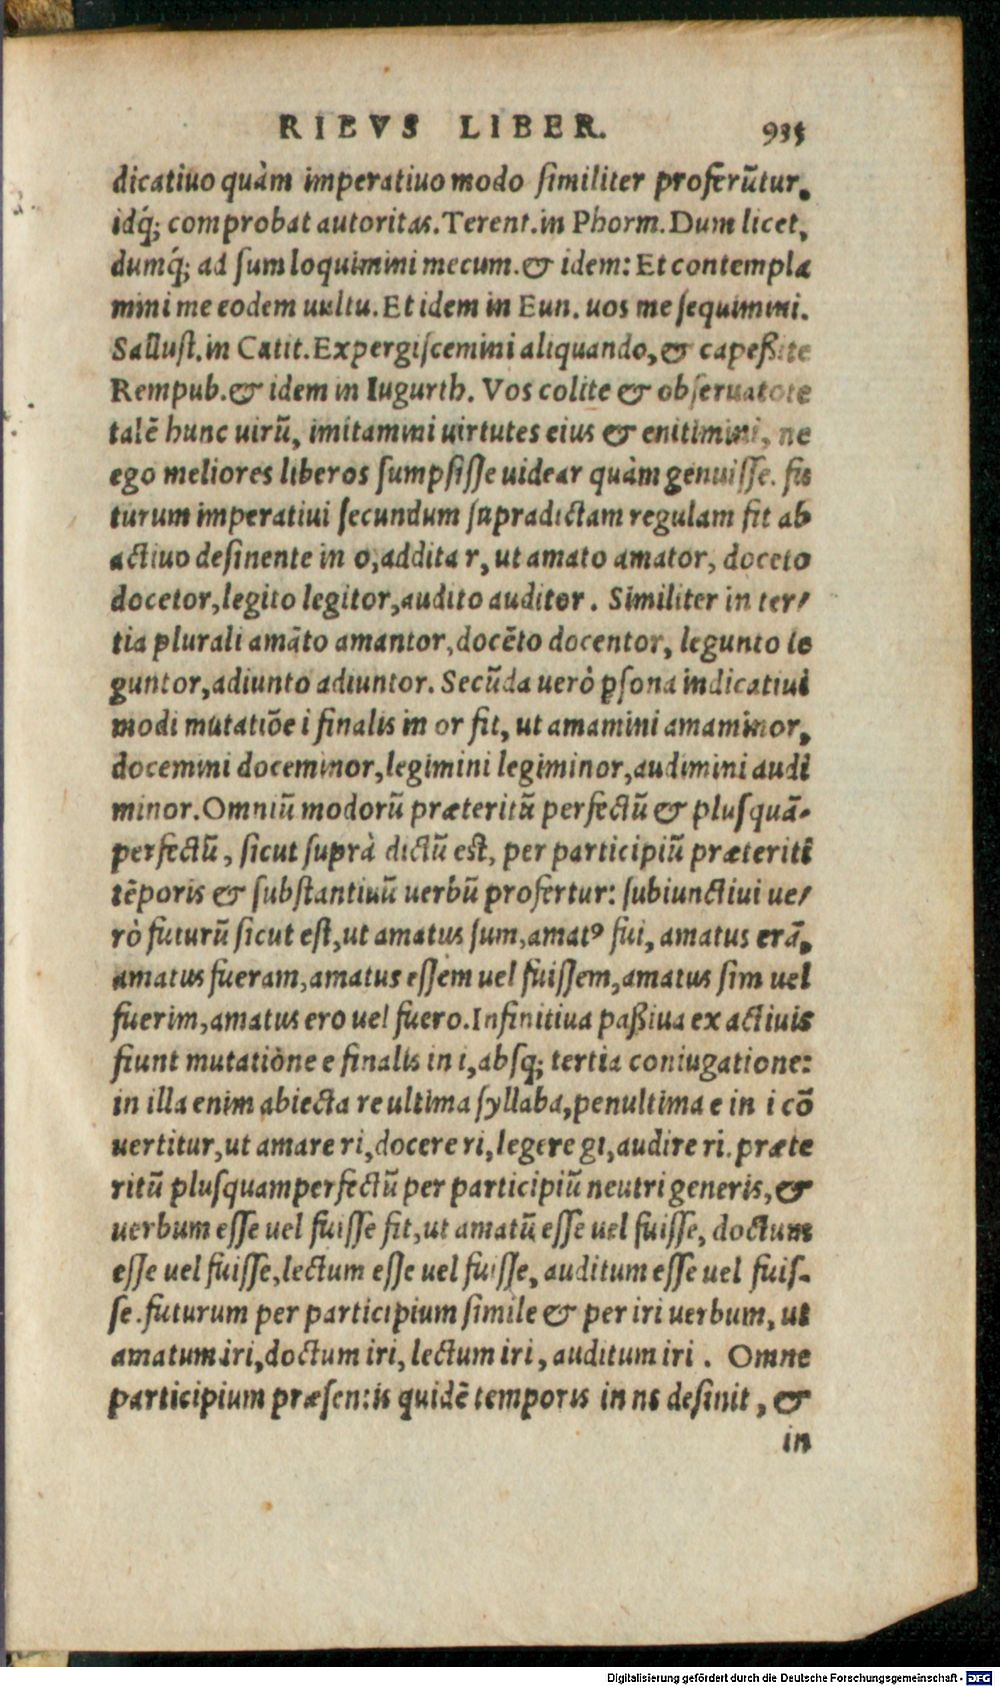 RIBVS LIBER. 935
dicatiuo quàm imperatiuo modo similiter proferũtur.
idq́; comprobat autoritas. Terent. in Phorm. Dum licet,
dumq́; ad sum loquimini mecum. & idem: Et contempla
mini me eodem uultu. Et idem in Eun. uos me sequimini.
Sallust. in Catit. Expergiscemini aliquando, & capeßite
Rempub. & idem in Iugurth. Vos colite & obseruatote
talẽ hunc uirũ, imitamini uirtutes eius & enitimini, ne
ego meliores liberos sumpsisse uidear quàm genuisse. fu
turum imperatiui secundum supradictam regulam fit ab
actiuo desinente in o, addita r, ut amato amator, doceto
docetor, legito legitor, audito auditor. Similiter in ter/
tia plurali amãto amantor, docẽto docentor, legunto le
guntor, adiunto adiuntor. Secũda uerò ꝑsona indicatiui
modi mutatiõe i finalis in or fit, ut amamini amaminor,
docemini doceminor, legimini legiminor, audimini audi
minor. Omniũ modorũ præteritũ perfectũ & plusquã-
perfectũ, sicut suprà dictũ est, per participiũ præteriti
tẽporis & substantiuũ uerbũ profertur: subiunctiui ue/
rò futurũ sicut est, ut amatus sum, amatꝰ fui, amatus erã,
amatus fueram, amatus essem uel fuissem, amatus sim uel
fuerim, amatus ero uel fuero. Infinitiua paßiua ex actiuis
fiunt mutatiòne e finalis in i, absq; tertia coniugatione:
in illa enim abiecta re ultima syllaba, penultima e in i cõ
uertitur, ut amare ri, docere ri, legere gi, audire ri. præte
ritũ plusquamperfectũ per participiũ neutri generis, &
uerbum esse uel fuisse fit, ut amatũ esse uel fuisse, doctum
esse uel fuisse, lectum esse uel fuisse, auditum esse uel fuis-
se. futurum per participium simile & per iri uerbum, ut
amatum iri, doctum iri, lectum iri, auditum iri. Omne
participium præsentis quidẽ temporis in ns desinit, &
in
Digitalisierung gefördert durch die Deutsche Forschungsgemeinschaft - DFG